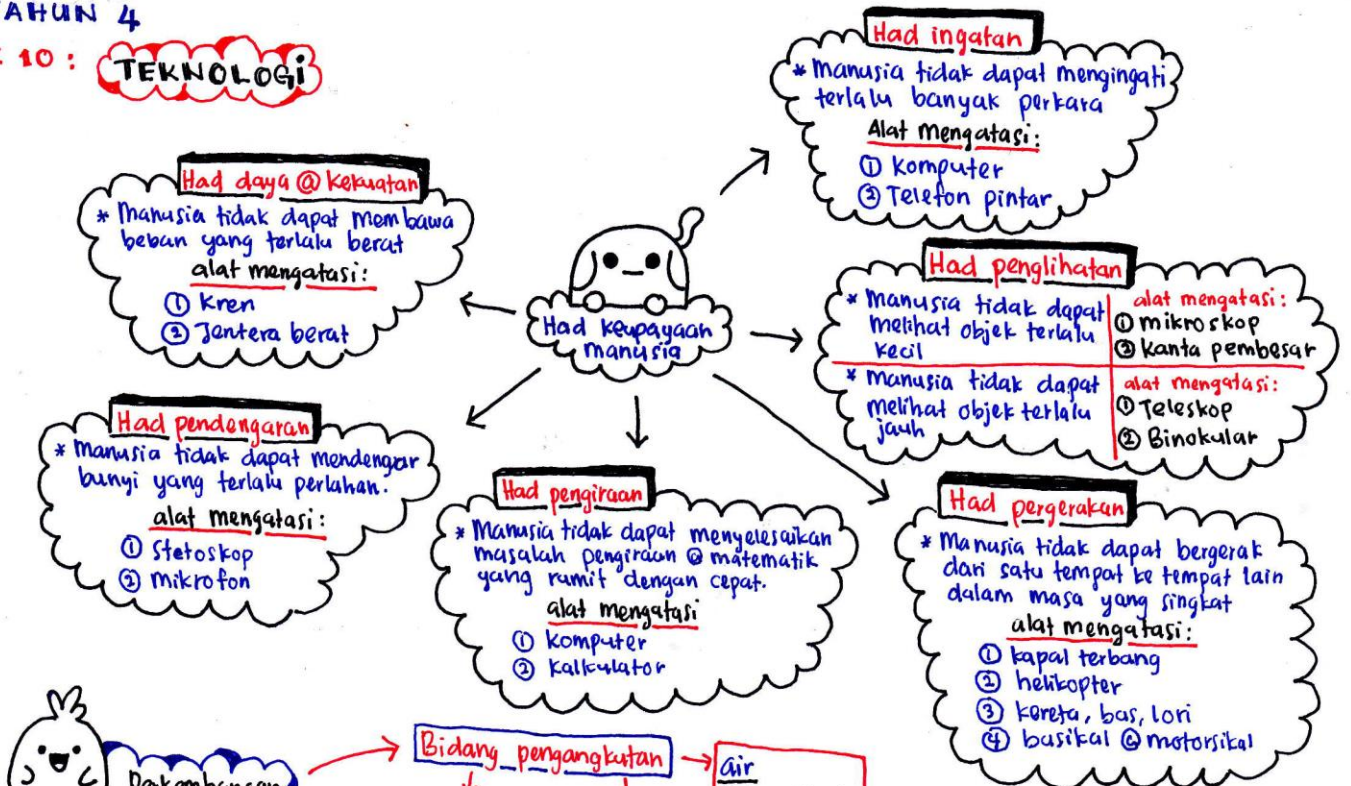 TAHUN 4
10 :
TEKNOLOGi
Had ingatan
* Manusia tidak dapat mengingati
terlalu banyak perkara
Alat mengatasi:
① Komputer
② Telefon pintar
Had daya @ kekuatan
* Manusia tidak dapat membawa
beban yang terlalu berat
alat mengatasi:
① Kren
② Jentera berat
Had keupayaan
manusia
Had penglihatan
* Manusia tidak dapat
melihat objek terlalu
kecil
alat mengatasi:
① mikroskop
② Kanta pembesar
* Manusia tidak dapat
melihat objek terlalu
jauh
alat mengatasi:
① Teleskop
② Binokular
Had pendengaran
* Manusia tidak dapat mendengar
bunyi yang terlalu perlahan.
alat mengatasi:
① Stetoskop
② mikrofon
Had pengiraan
* Manusia tidak dapat menyelesaikan
masalah pengiraan @ matematik
yang rumit dengan cepat.
alat mengatasi
① Komputer
② Kalkulator
Had pergerakan
* Manusia tidak dapat bergerak
dari satu tempat ke tempat lain
dalam masa yang singkat
alat mengatasi:
① kapal terbang
② helikopter
③ kereta, bas, lori
④ basikal @ motorsikal
Perkembangan
Bidang pengangkutan
air